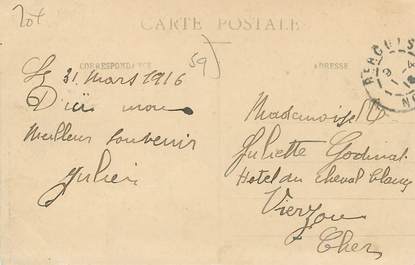 CARTE POSTALE
CORRESPONDANCE
ADRESSE
59
Le 31 mars 1916
meilleur souvenir
Julien
Mademoiselle
Juliette Godinat
Hotel du Cheval blanc
Vierzon
Cher